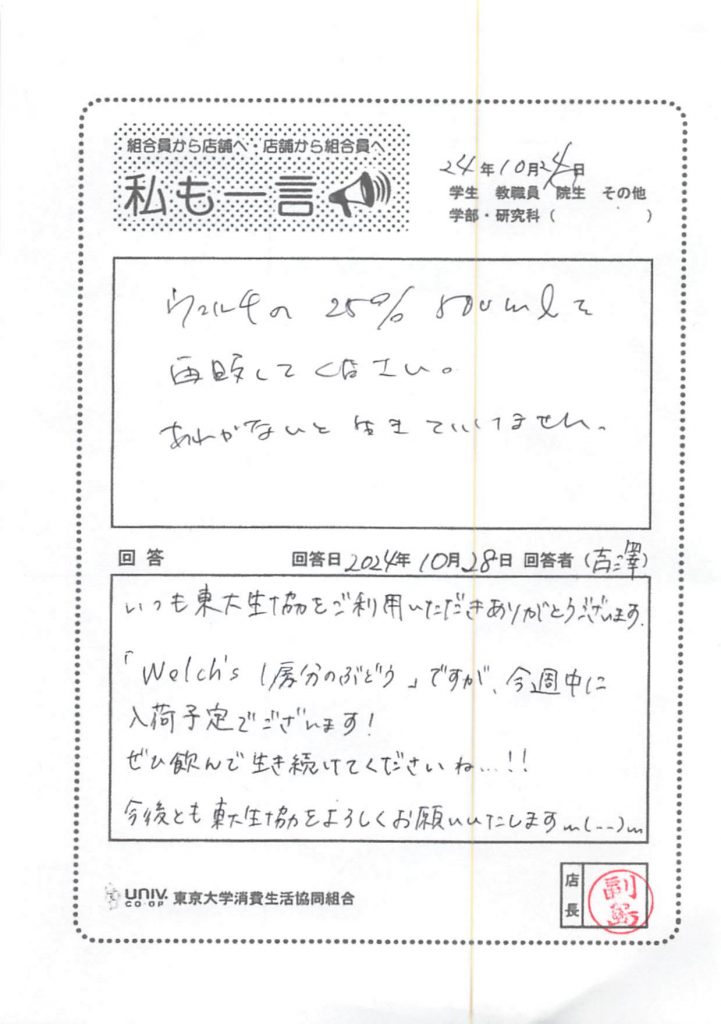 組合員から店舗へ・店舗から組合員へ
私も一言
24年10月24日
学生 教職員 院生 その他
学部・研究科（ ）
ウェルチの 25% 500mlを
再販して ください。
あれがないと 生きていけません。
回答 回答日 2024年 10月28日 回答者（吉澤）
いつも東大生協をご利用いただきありがとうございます。
「Welch's 1房分のぶどう」ですが、今週中に
入荷予定でございます！
ぜひ飲んで生き続けてくださいね…!!
今後とも東大生協をよろしくお願いいたしますm(--)m
UNIV. CO-OP 東京大学消費生活協同組合
店長 副島